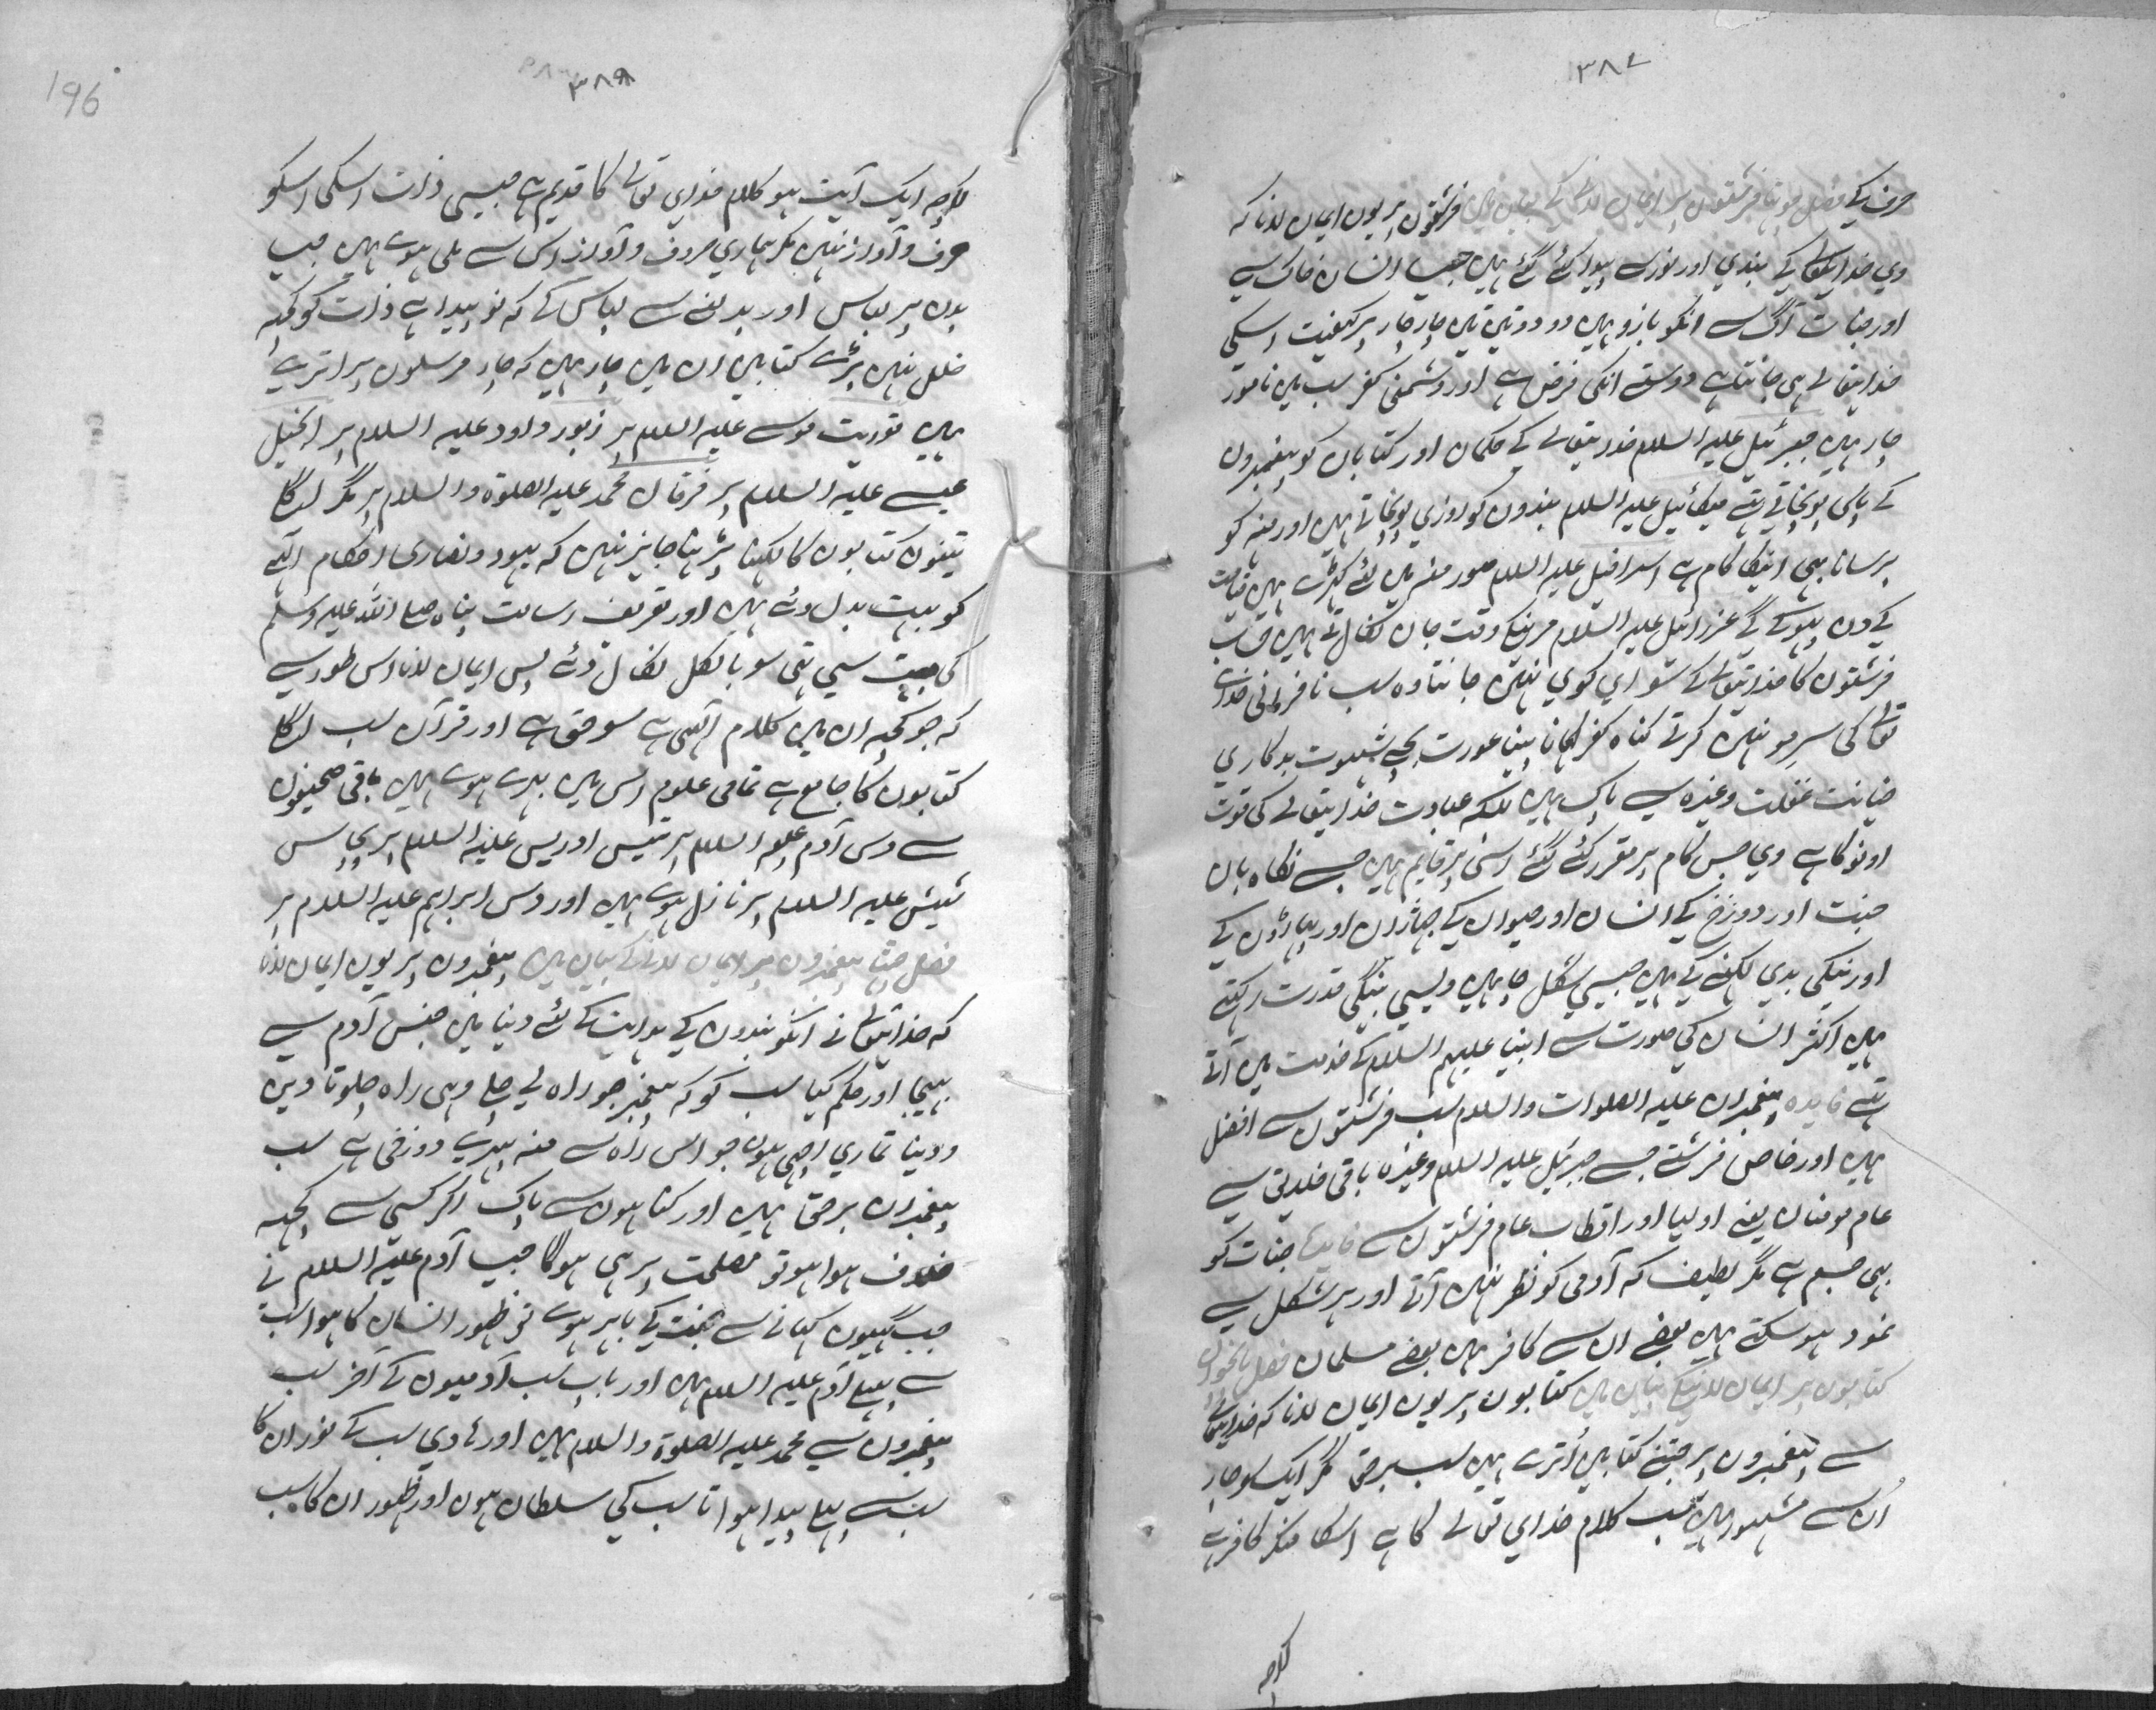 ۳۸۷
حرف کے فصل چوتھا فرشتوں پر ایمان لانے کے بیان میں فرشتوں پر یوں ایمان لانا کہ
وی خدایتعالی کے بندی اور نور سے پیدا کئے گئے ہیں جیسا انسان خاک سے
اور جنات آگ سے انکو بازو ہیں دو دو تین تین چار چار پر کیفیت اسکی
خدایتعالے ہی جانتا ہے دوستے انکی فرض ہے اور دشمنی کفر سب میں نامور
چار ہیں جبرئیل علیہ السلام خدایتعالے کے حکمان اور کتابان کو پیغمبرون
کے پاس پونچاتے تہے میکائیل علیہ السلام بندون کو روزی پونچاتے ہیں اور منہ کو
برسانا بہی انکا کام ہے اسرافیل علیہ السلام صور منہ میں لئے کہڑے ہیں قیامت
کے دن پہوکے گے عزرائیل علیہ السلام مرنیکے وقت جان نکالتے ہیں حساب
فرشتون کا خدایتعالے کے سواے کوی نہین جانتا وہ سب نافرمانی خداے
تعالے کی سر مو نہین کرتے گناہ کفر کہانا پینا عورت بچے شہوت بدکاری
خیانت غفلت وغیرہ سے پاک ہیں بلکہ عبادت خدایتعالے کی قوت
اونو کا ہے وی جس کام پر مقرر کئے گئے اسی پر قایم ہیں جسے نگاہ بان
جنت اور دوزخ کے انسان اور حیوان کے جہاڑان اور پہاڑون کے
اور نیکی بدی لکہنے کے ہیں جیسی شکل چاہیں ویسی بننیکی قدرت رکہتے
ہیں اکثر انسان کی صورت سے انبیا علیہم السلام کے خدمت میں آتے
تہے فایدہ پیغمبران علیہ الصلوات والسلام سب فرشتون سے افضل
ہیں اور خاص فرشتے جسے جبرئیل علیہ السلام وغیرہ باقی خلایق سے
عام مومنان یعنے اولیا اور اقطاب عام فرشتون سے فایدہ جنات کو
بہی جسم ہے مگر لطیف کہ آدمی کو نظر نہین آتے اور ہر شکل سے
نمود ہو سکتے ہیں بعضے ان سے کافر ہیں بعضے مسلمان فصل پانچوان
کتابون پر ایمان لانیکے بیان میں کتابون پر یون ایمان لانا کہ خدایتعالے
سے پیغمبرون پر جتنے کتابین اُترے ہیں سب برحق مگر ایک سو چار
اُن سے مشہور ہیں سب کلام خدای تعالے کا ہے اسکا منکر کافر ہے
گرچہ
196
۳۸۸
گرچہ ایک آیت ہو کلام خدای تعالے کا قدیم ہے جیسی ذات اسکی اسکو
حرف و آواز نہین مگر ہماری حروف و آواز اس سے ملی ہوے ہین جیسا
بدن پر لباس اور بدلنے سے لباس کے کہ نو پیدا ہے ذات کو کچہ
خلل نہین بڑے کتابین ان میں چار ہین کہ چار مرسلون پر اترے
ہین توریت موسے علیہ السلام پر زبور داود علیہ السلام پر انجیل
عیسے علیہ السلام پر فرقان محمد علیہ الصلوة والسلام پر مگر اگلا
تینون کتابون کا لکہنا پڑہنا جایز نہین کہ یہود و نصاری احکام الٰہے
کو بہت بدل دئے ہین اور تعریف رسالت پناہ صلے اللہ علیہ وسلم
کی جیت سی تہی سو بالکل نکال دئے پس ایمان لانا اس طور سے
کہ جو کچہ ان میں کلام الٰہی ہے سو حق ہے اور قرآن سب اگلا
کتابون کا جامع ہے تمامی علوم اس میں بہرے ہوے ہیں باقی صحیفون
سے دس آدم علیہ السلام پر تیس ادریس علیہ السلام پر پچاس
شیش علیہ السلام پر نازل ہوے ہین اور دس ابراہیم علیہ السلام پر
فصل چہٹا پیغمبرون پر ایمان لانے کے بیان میں پیغمبرون پر یون ایمان لانا
کہ خدایتعالے نے انکو بندون کے ہدایت کے لئے دنیا میں جنس آدم سے
بہیجا اور حکم کیا سب کو کہ پیغمبر جو راہ لے چلے وہی راہ چلو تا دین
و دنیا تماری اچہی ہون جو اس راہ سے منہ پہیرے دوزخی ہے سب
پیغمبران برحق ہین اور گناہون سے پاک اگر کسی سے کچہ
خلاف ہوا ہو تو مصلحت پر ہی ہوگا جیسا آدم علیہ السلام نے
جب گیہون کہانے سے جنت کے باہر ہوے تو ظہور انسان کا ہوا سب
سے پہلے آدم علیہ السلام ہین اور باپ سب آدمیون کے آخر سب
پیغمبرون سے محمد علیہ الصلوة والسلام ہین اور ہادی سب کے نور ان کا
سب سے پہلے پیدا ہوا تا سب کی سلطان ہون اور ظہور ان کا سب